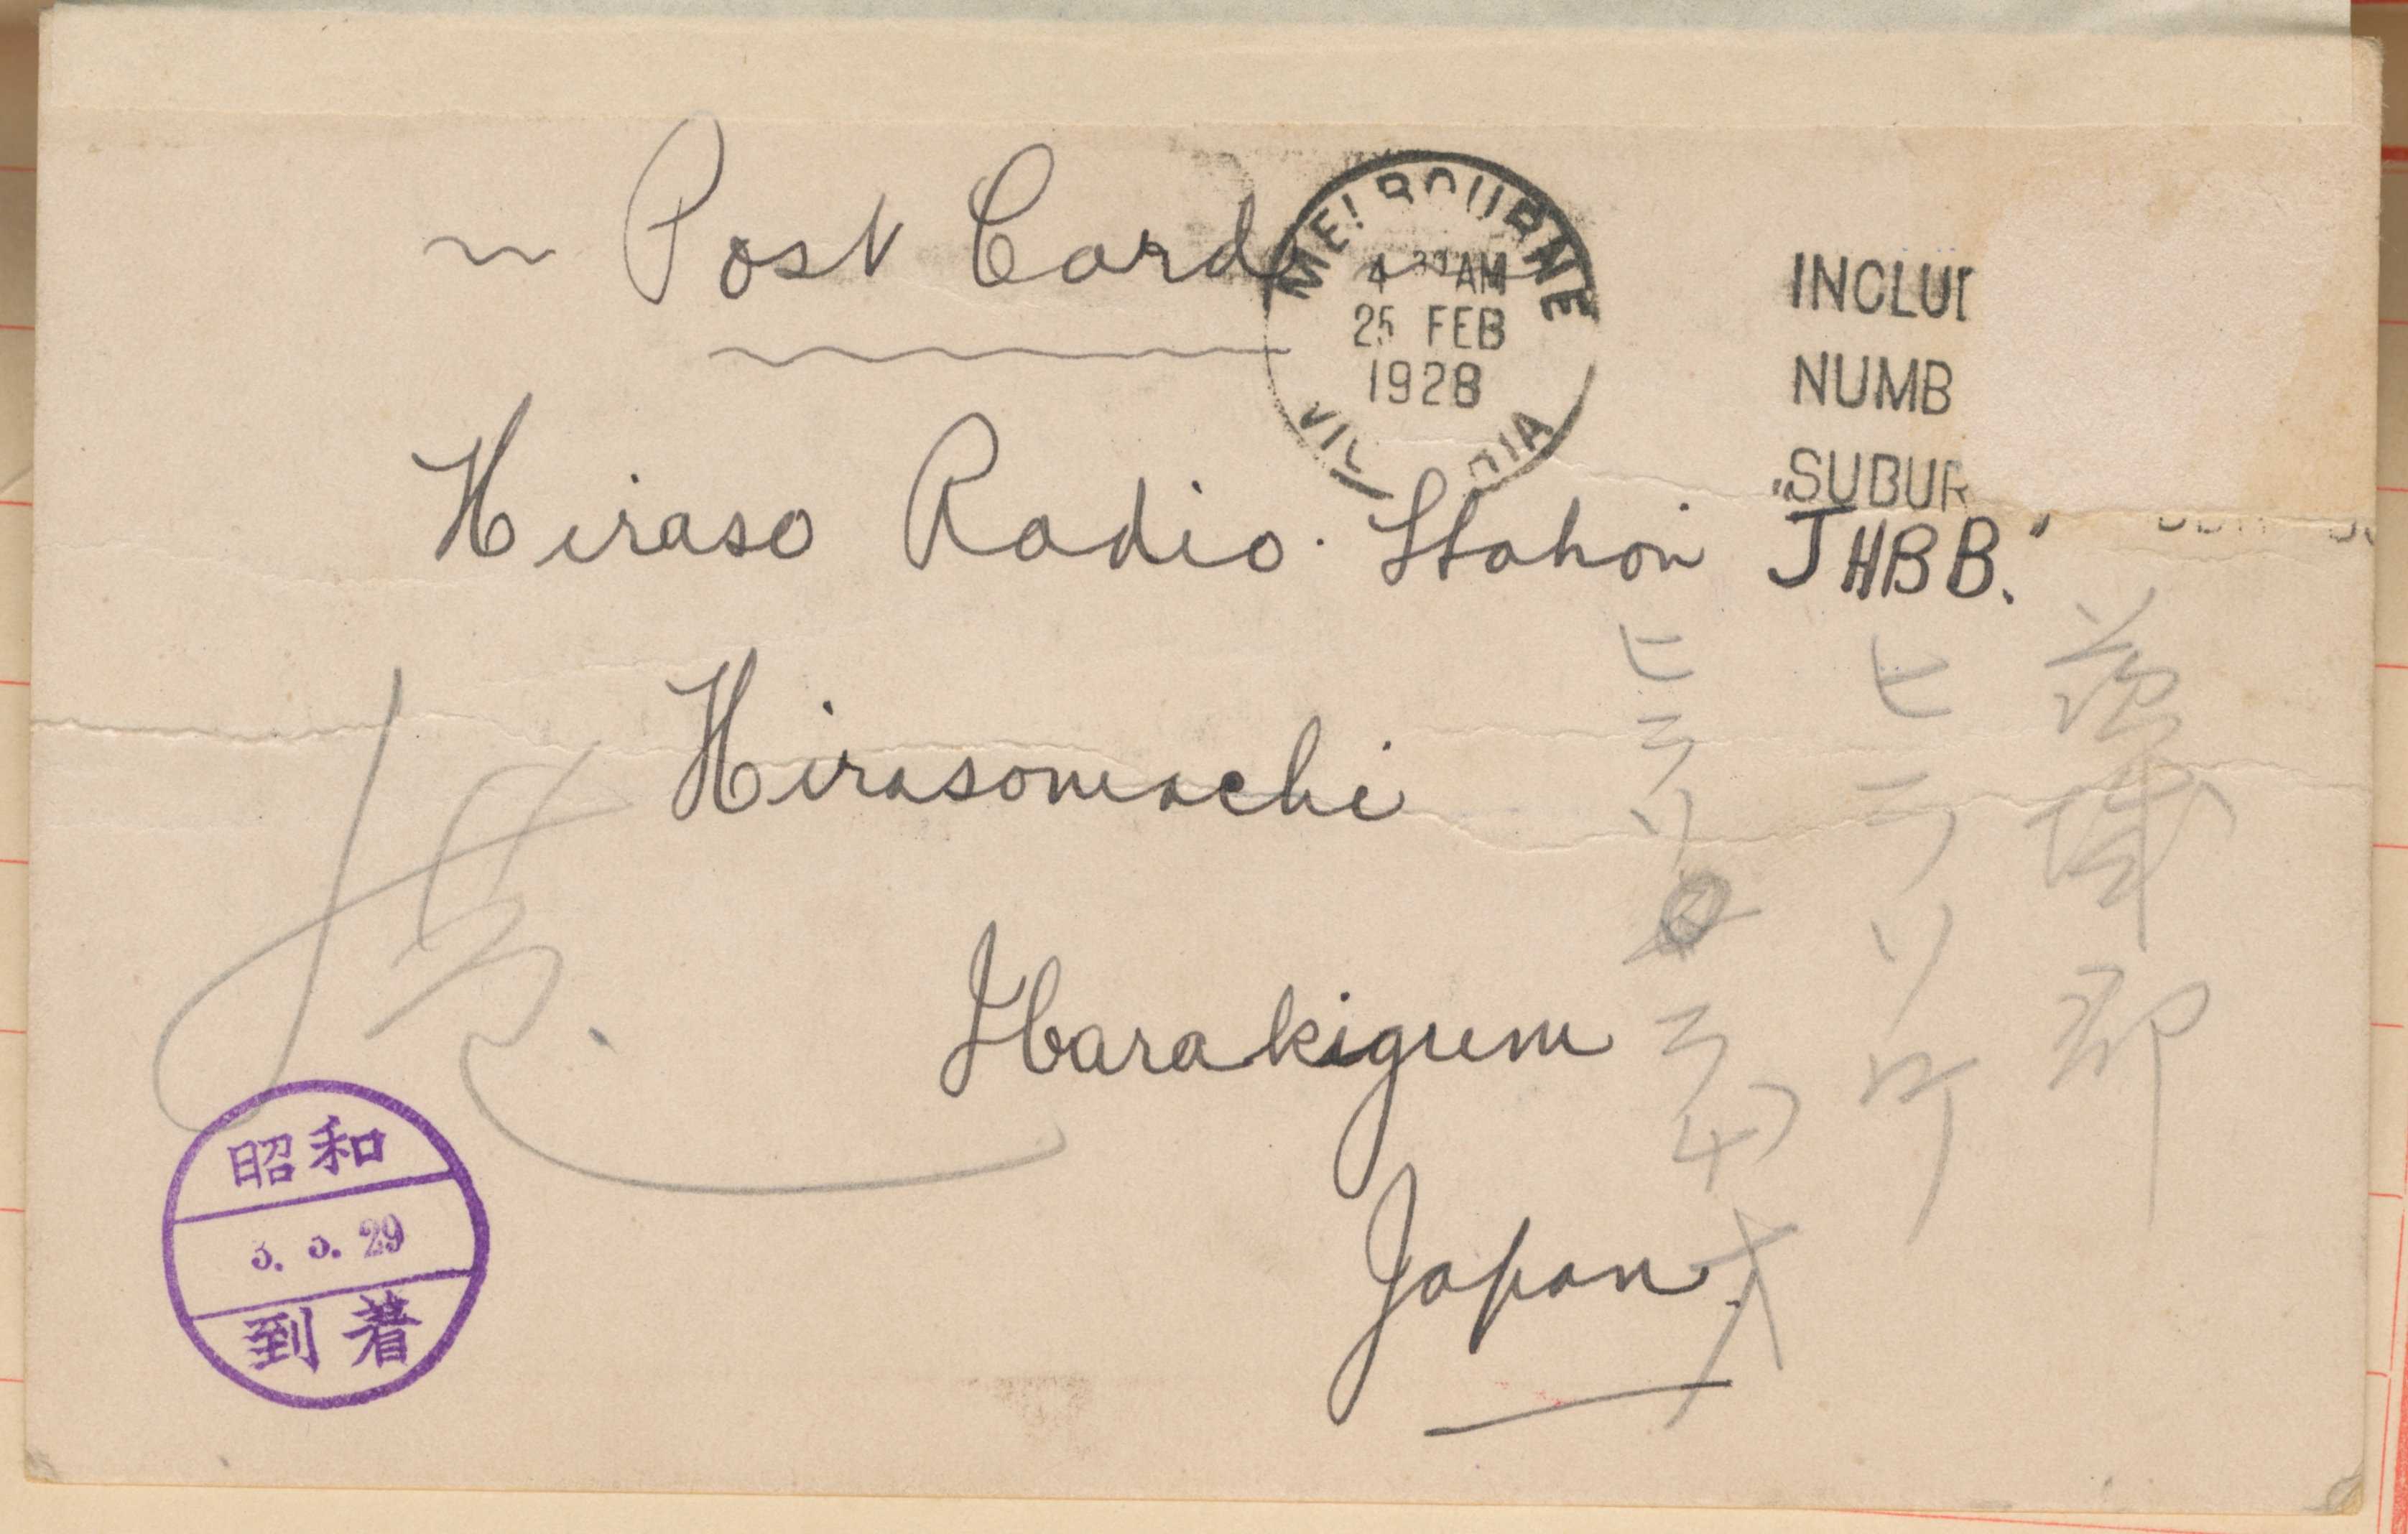 ~ Post Card
MELBOURNE
4 30 AM
25 FEB
1928
VIC RIA
INCLUD
NUMB
SUBUR
Hiraso Radio Station "JHBB."
Hirasomachi
Ibarakigum
Japan.
茨城郡
ヒラソ町
ヒラソ
昭和
3. 3. 29
到着